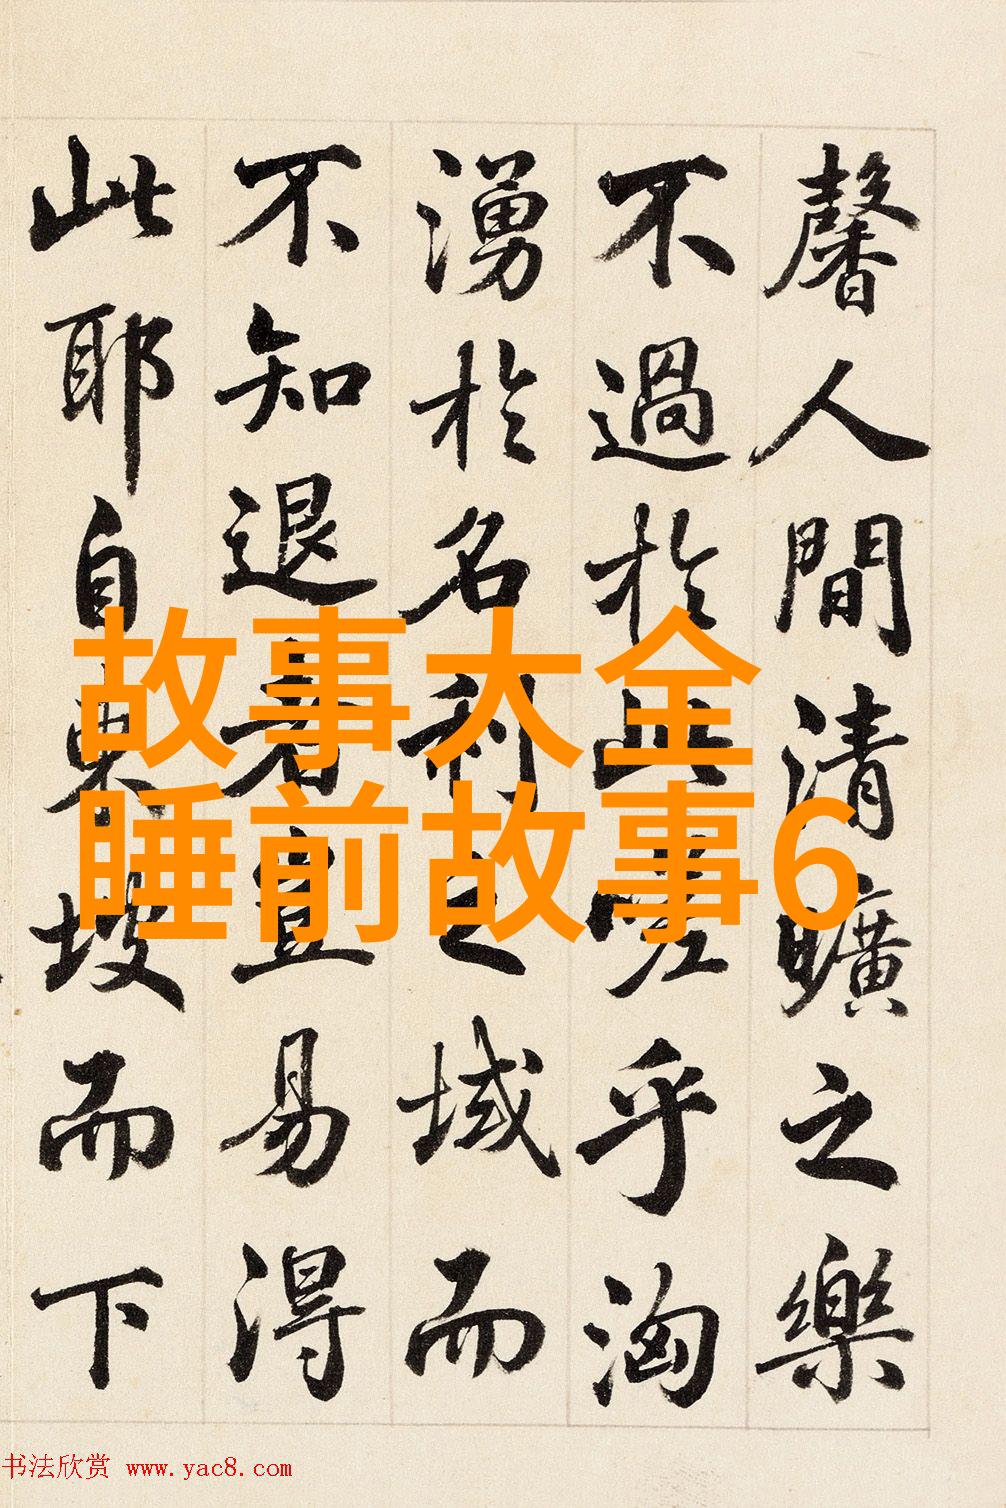 馨人間清曠之樂
不過於此嗟乎洶
湧於名利之域而
不知退者豈易得
此耶自東坡而下
故事大全
睡前故事6
书法欣赏 www.yac8.com